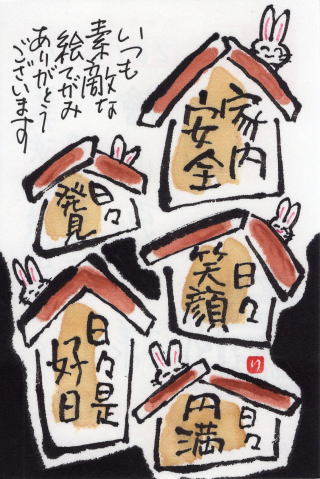 いつも
素敵な
絵てがみ
ありがとう
ございます
家内
安全
日々
発見
日々
笑顔
日々是
好日
日々
円満
け